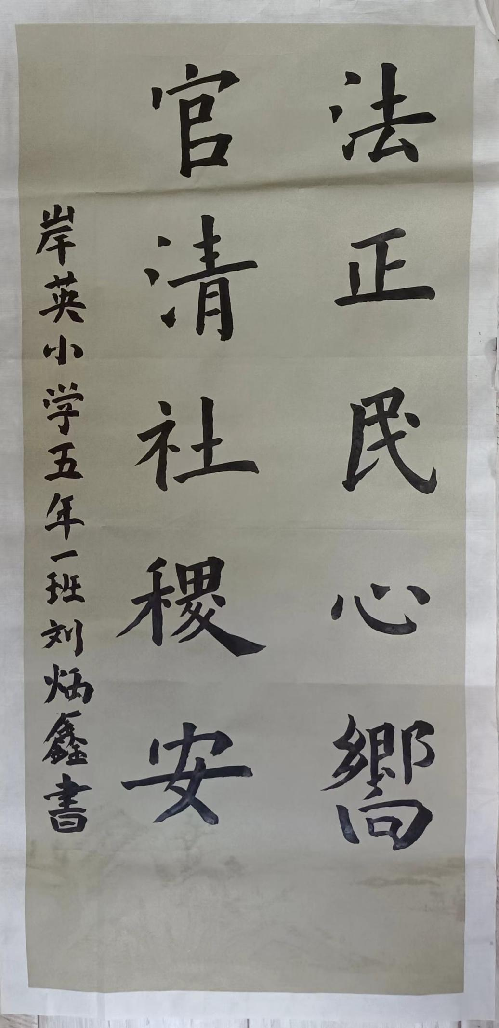 法正民心嚮
官清社稷安
岸英小学五年一班刘炳鑫書